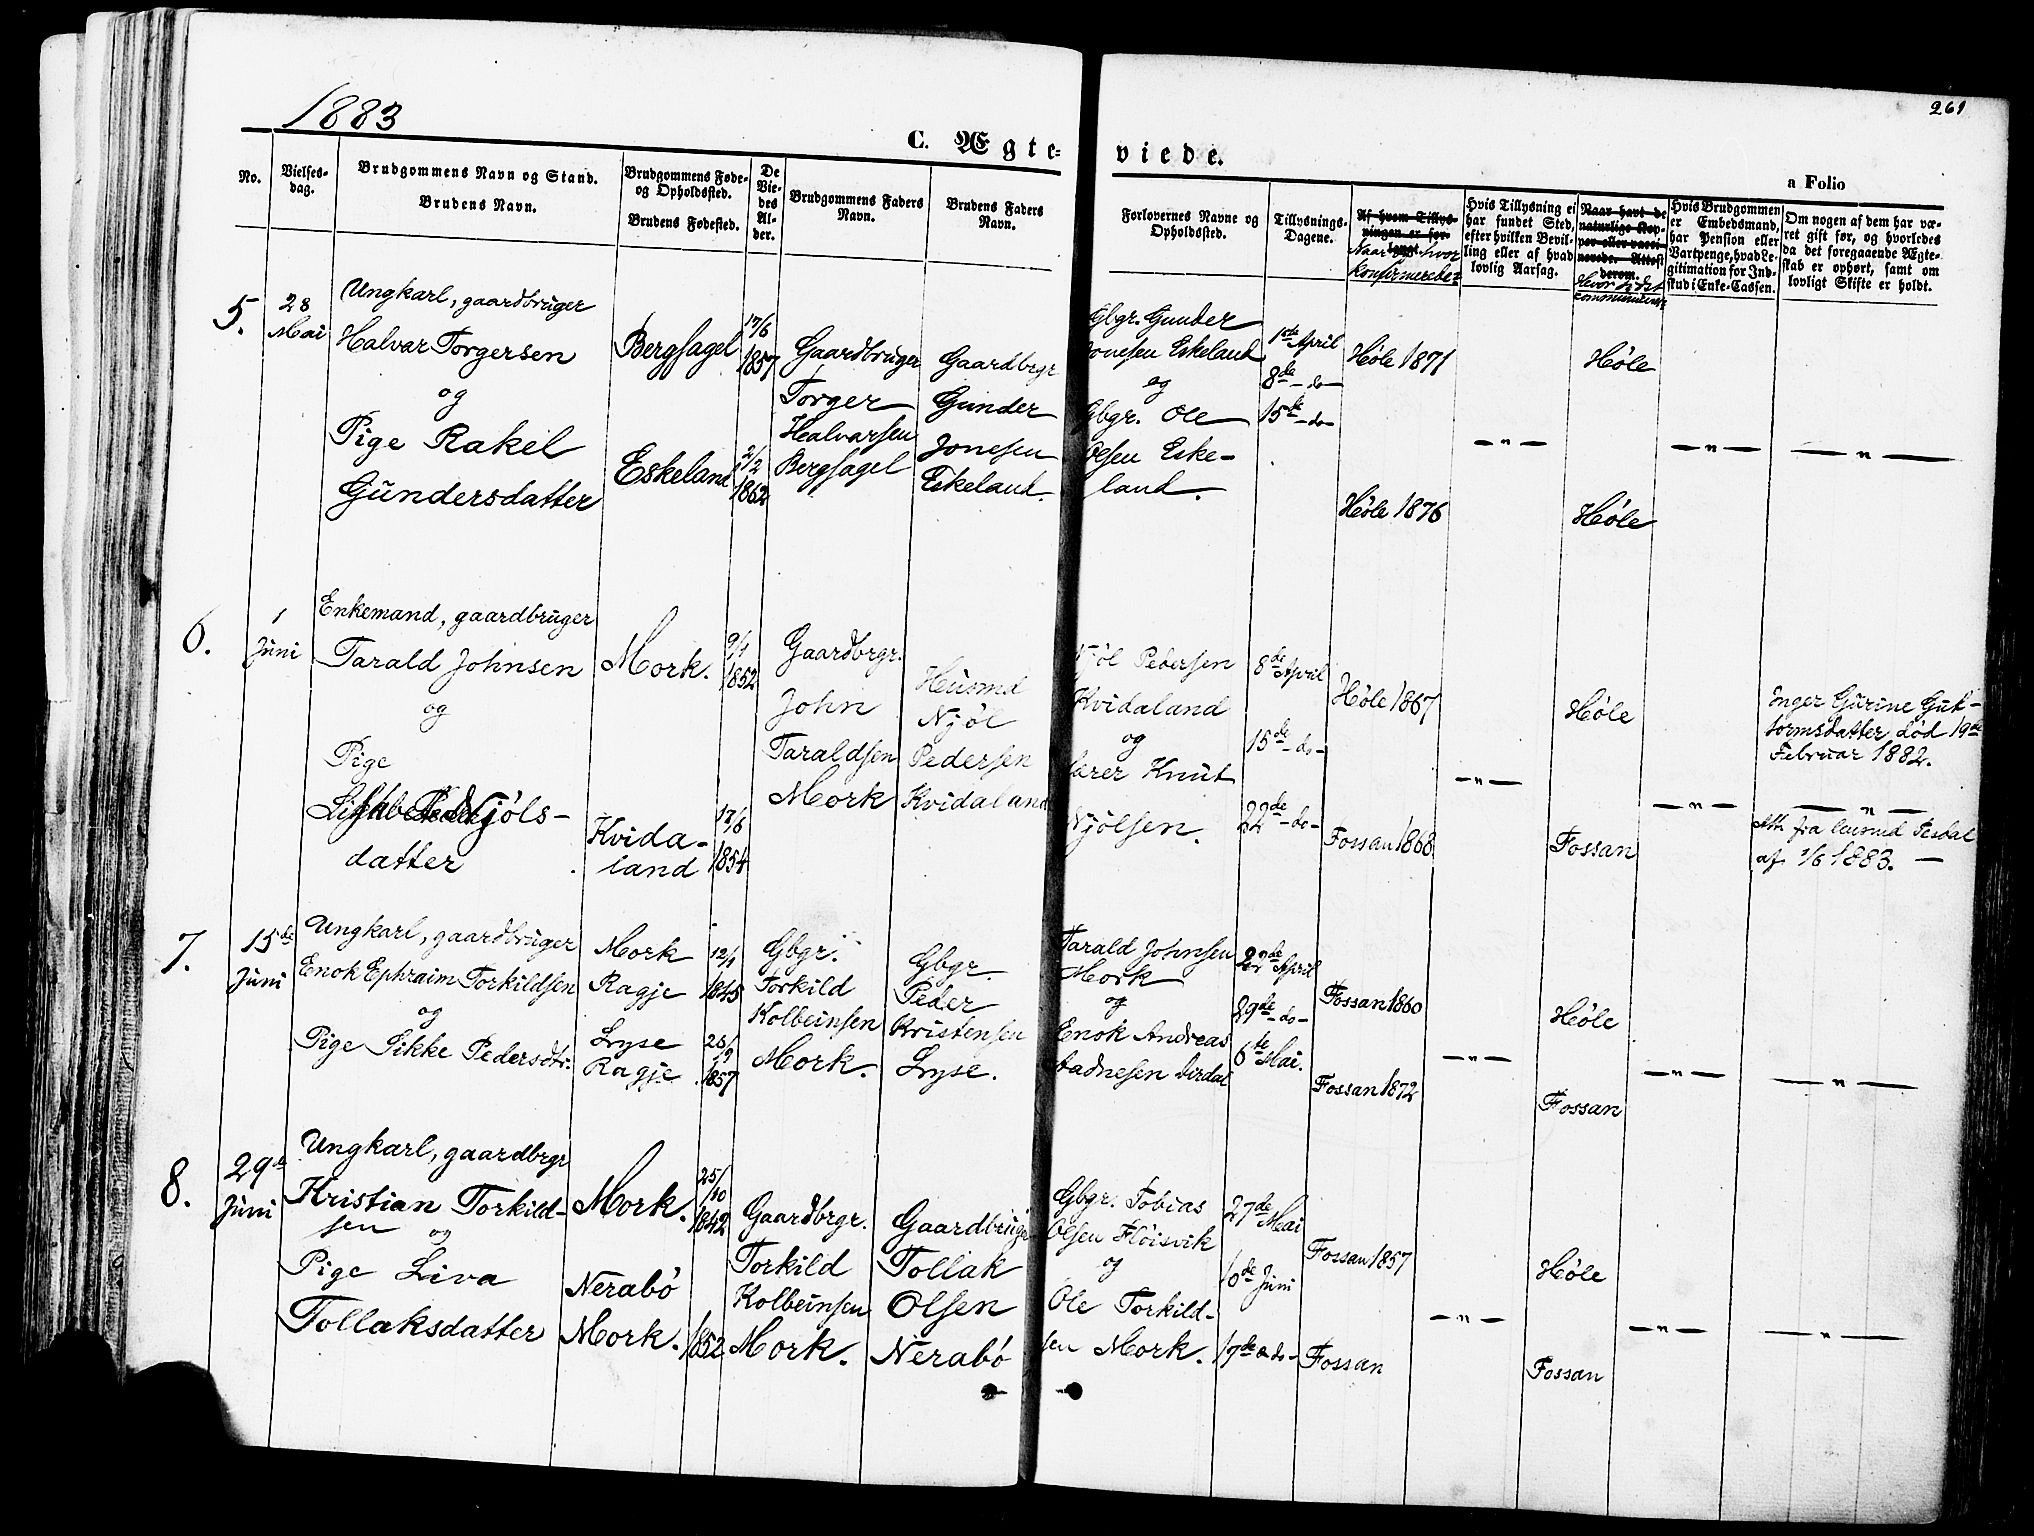 1883
261
C. Ægte-
viede.
a Folio
No.
Vielses-
dag.
Brudgommens Navn og Stand.
Brudens Navn.
Brudgommens Føde-
og Opholdssted.
Brudens Fødested.
De
Vie-
des
Al-
der.
Brudgommens Faders
Navn.
Brudens Faders
Navn.
Forlovernes Navne og
Opholdssted.
Tillysnings-
Dagene.
Af hvem Tillys-
ningen er for-
langt.
Naar og hvor
konfirmerede.
Hvis Tillysning ei
har fundet Sted,
efter hvilken Bevil-
ling eller af hvad
lovlig Aarsag.
Naar havt de
naturlige Kop-
per eller vacci-
nerede. Attest
derom.
Hvor sidst
Hvis Brudgommen
er Embedsmand,
har Pension eller
Vartpenge, hvad Le-
gitimation for Ind-
skud i Enke-Cassen.
Om nogen af dem har væ-
ret gift før, og hvorledes
da det foregaaende Ægte-
skab er ophørt, samt om
lovligt Skifte er holdt.
5.
28
Mai
Ungkarl, gaardbruger
Halvar Torgersen
og
Pige Rakel
Gundersdatter
Bergsagel
Eskeland
17/6
1857
2/2
1862
Gaardbruger
Torger
Halvarsen
Bergsagel
Gaardbrgr
Gunder
Jonesen
Eskeland.
Gbgr. Gunder
Jonesen Eskeland
og
Gbgr. Ole
Olsen Eske-
land.
1ste April
8de - do -
15de - do -
Høle 1871
Høle 1876
— " —
Høle
Høle
— " —
— " —
6.
1
Juni
Enkemand, gaardbruger
Tarald Johnsen
og
Pige
Njøls-
datter
Mork.
Kvida-
land
9/1
1852
17/6
1854
Gaardbrgr.
John
Taraldsen
Mork
Husmd
Njøl
Pedersen
Kvidaland
Njøl Pedersen
Kvidaland
og
Knut
Njølsen.
8de April
15de - do -
22de - do -
Høle 1867
Fossan 1868
— " —
Høle
Fossan
— " —
Inger Gurine Gut-
tormsdatter død 19de
Februar 1882.
— " —
Att. fra
af 1/6 1883. —
7.
15de
Juni
Ungkarl, gaardbruger
Enok Ephraim Torkildsen
og
Pige Sikke Pedersdtr.
Mork
Ragje
Lyse
Ragje
12/1
1845
1857
Gbgr.
Torkild
Kolbeinsen
Mork.
Gbgr.
Peder
Kristensen
Lyse.
Tarald Johnsen
Mork
og
Enok Andreas
22de April
29de - do -
6te Mai.
Fossan 1860
Fossan 1872
— " —
Høle
Fossan
— " —
— " —
8.
29de
Juni
Ungkarl, gaardbrgr
Kristian Torkild-
sen og
Pige Liva
Tollaksdatter
Mork.
Nerabö
Mork.
25/10
1842
1852
Gaardbrgr.
Torkild
Kolbeinsen
Mork.
Gaardbruger
Tollak
Olsen
Nerabö
Gbgr. Tobias
Olsen Fløisvik
og
Ole Torkild-
sen Mork.
27de Mai
10de Juni
17de - do -
Fossan 1857
Fossan
— " —
Høle
Fossan
— " —
— " —